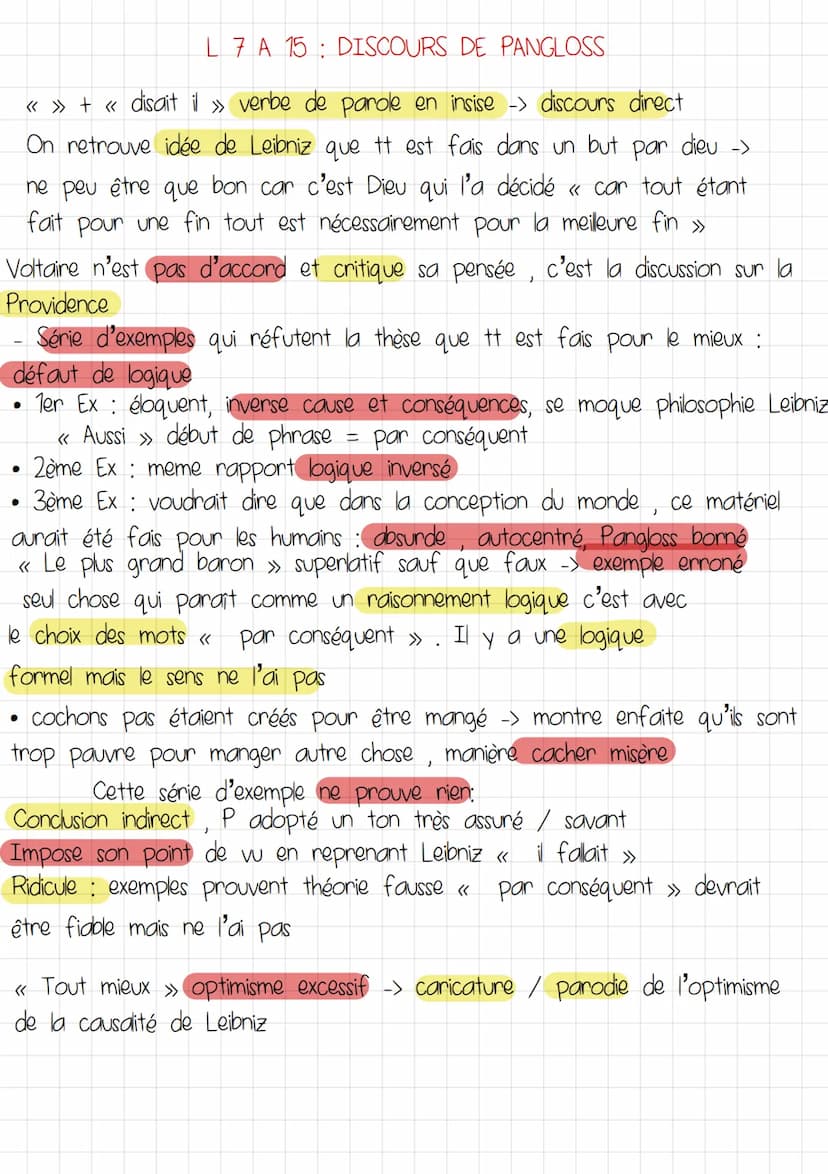 L 7 A 15 : DISCOURS DE PANGLOSS
« » + « disait il » verbe de parole en insise -> discours direct
On retrouve idée de Leibniz que tt est fais dans un but par dieu ->
ne peu être que bon car c'est Dieu qui l'a décidé « car tout étant
fait pour une fin tout est nécessairement pour la meilleure fin »
Voltaire n'est pas d'accord et critique sa pensée , c'est la discussion sur la
Providence
- Série d'exemples qui réfutent la thèse que tt est fais pour le mieux :
défaut de logique
• 1er Ex : éloquent, inverse cause et conséquences, se moque philosophie Leibniz
« Aussi » début de phrase = par conséquent
• 2ème Ex : meme rapport logique inversé
• 3ème Ex : voudrait dire que dans la conception du monde , ce matériel
aurait été fais pour les humains : absurde , autocentré, Pangloss borné
« Le plus grand baron » superlatif sauf que faux -> exemple erroné
seul chose qui parait comme un raisonnement logique c'est avec
le choix des mots « par conséquent » . Il y a une logique
formel mais le sens ne l'ai pas
• cochons pas étaient créés pour être mangé -> montre enfaite qu'ils sont
trop pauvre pour manger autre chose , manière cacher misère
Cette série d'exemple ne prouve rien:
Conclusion indirect , P adopté un ton très assuré / savant
Impose son point de vu en reprenant Leibniz « il fallait »
Ridicule : exemples prouvent théorie fausse « par conséquent » devrait
être fiable mais ne l'ai pas
« Tout mieux » optimisme excessif -> caricature / parodie de l'optimisme
de la causalité de Leibniz